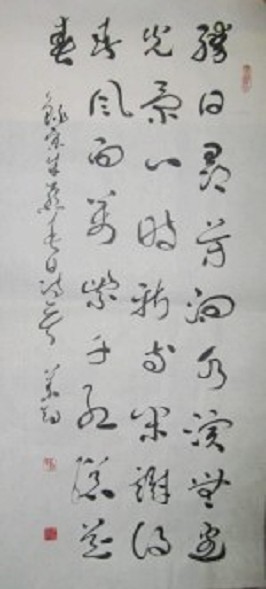 勝日尋芳泗水濱無邊
光景一時新等閒識得
東風面萬紫千紅總是
春
錄宋朱熹春日詩